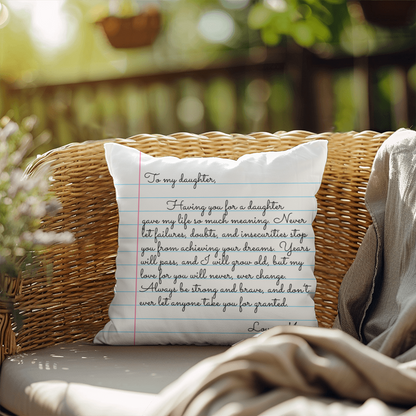 To my daughter,
Having you for a daughter
gave my life so much meaning. Never
let failures, doubts, and insecurities stop
you from achieving your dreams. Years
will pass, and I will grow old, but my
love for you will never, ever change.
Always be strong and brave, and don't
ever let anyone take you for granted.